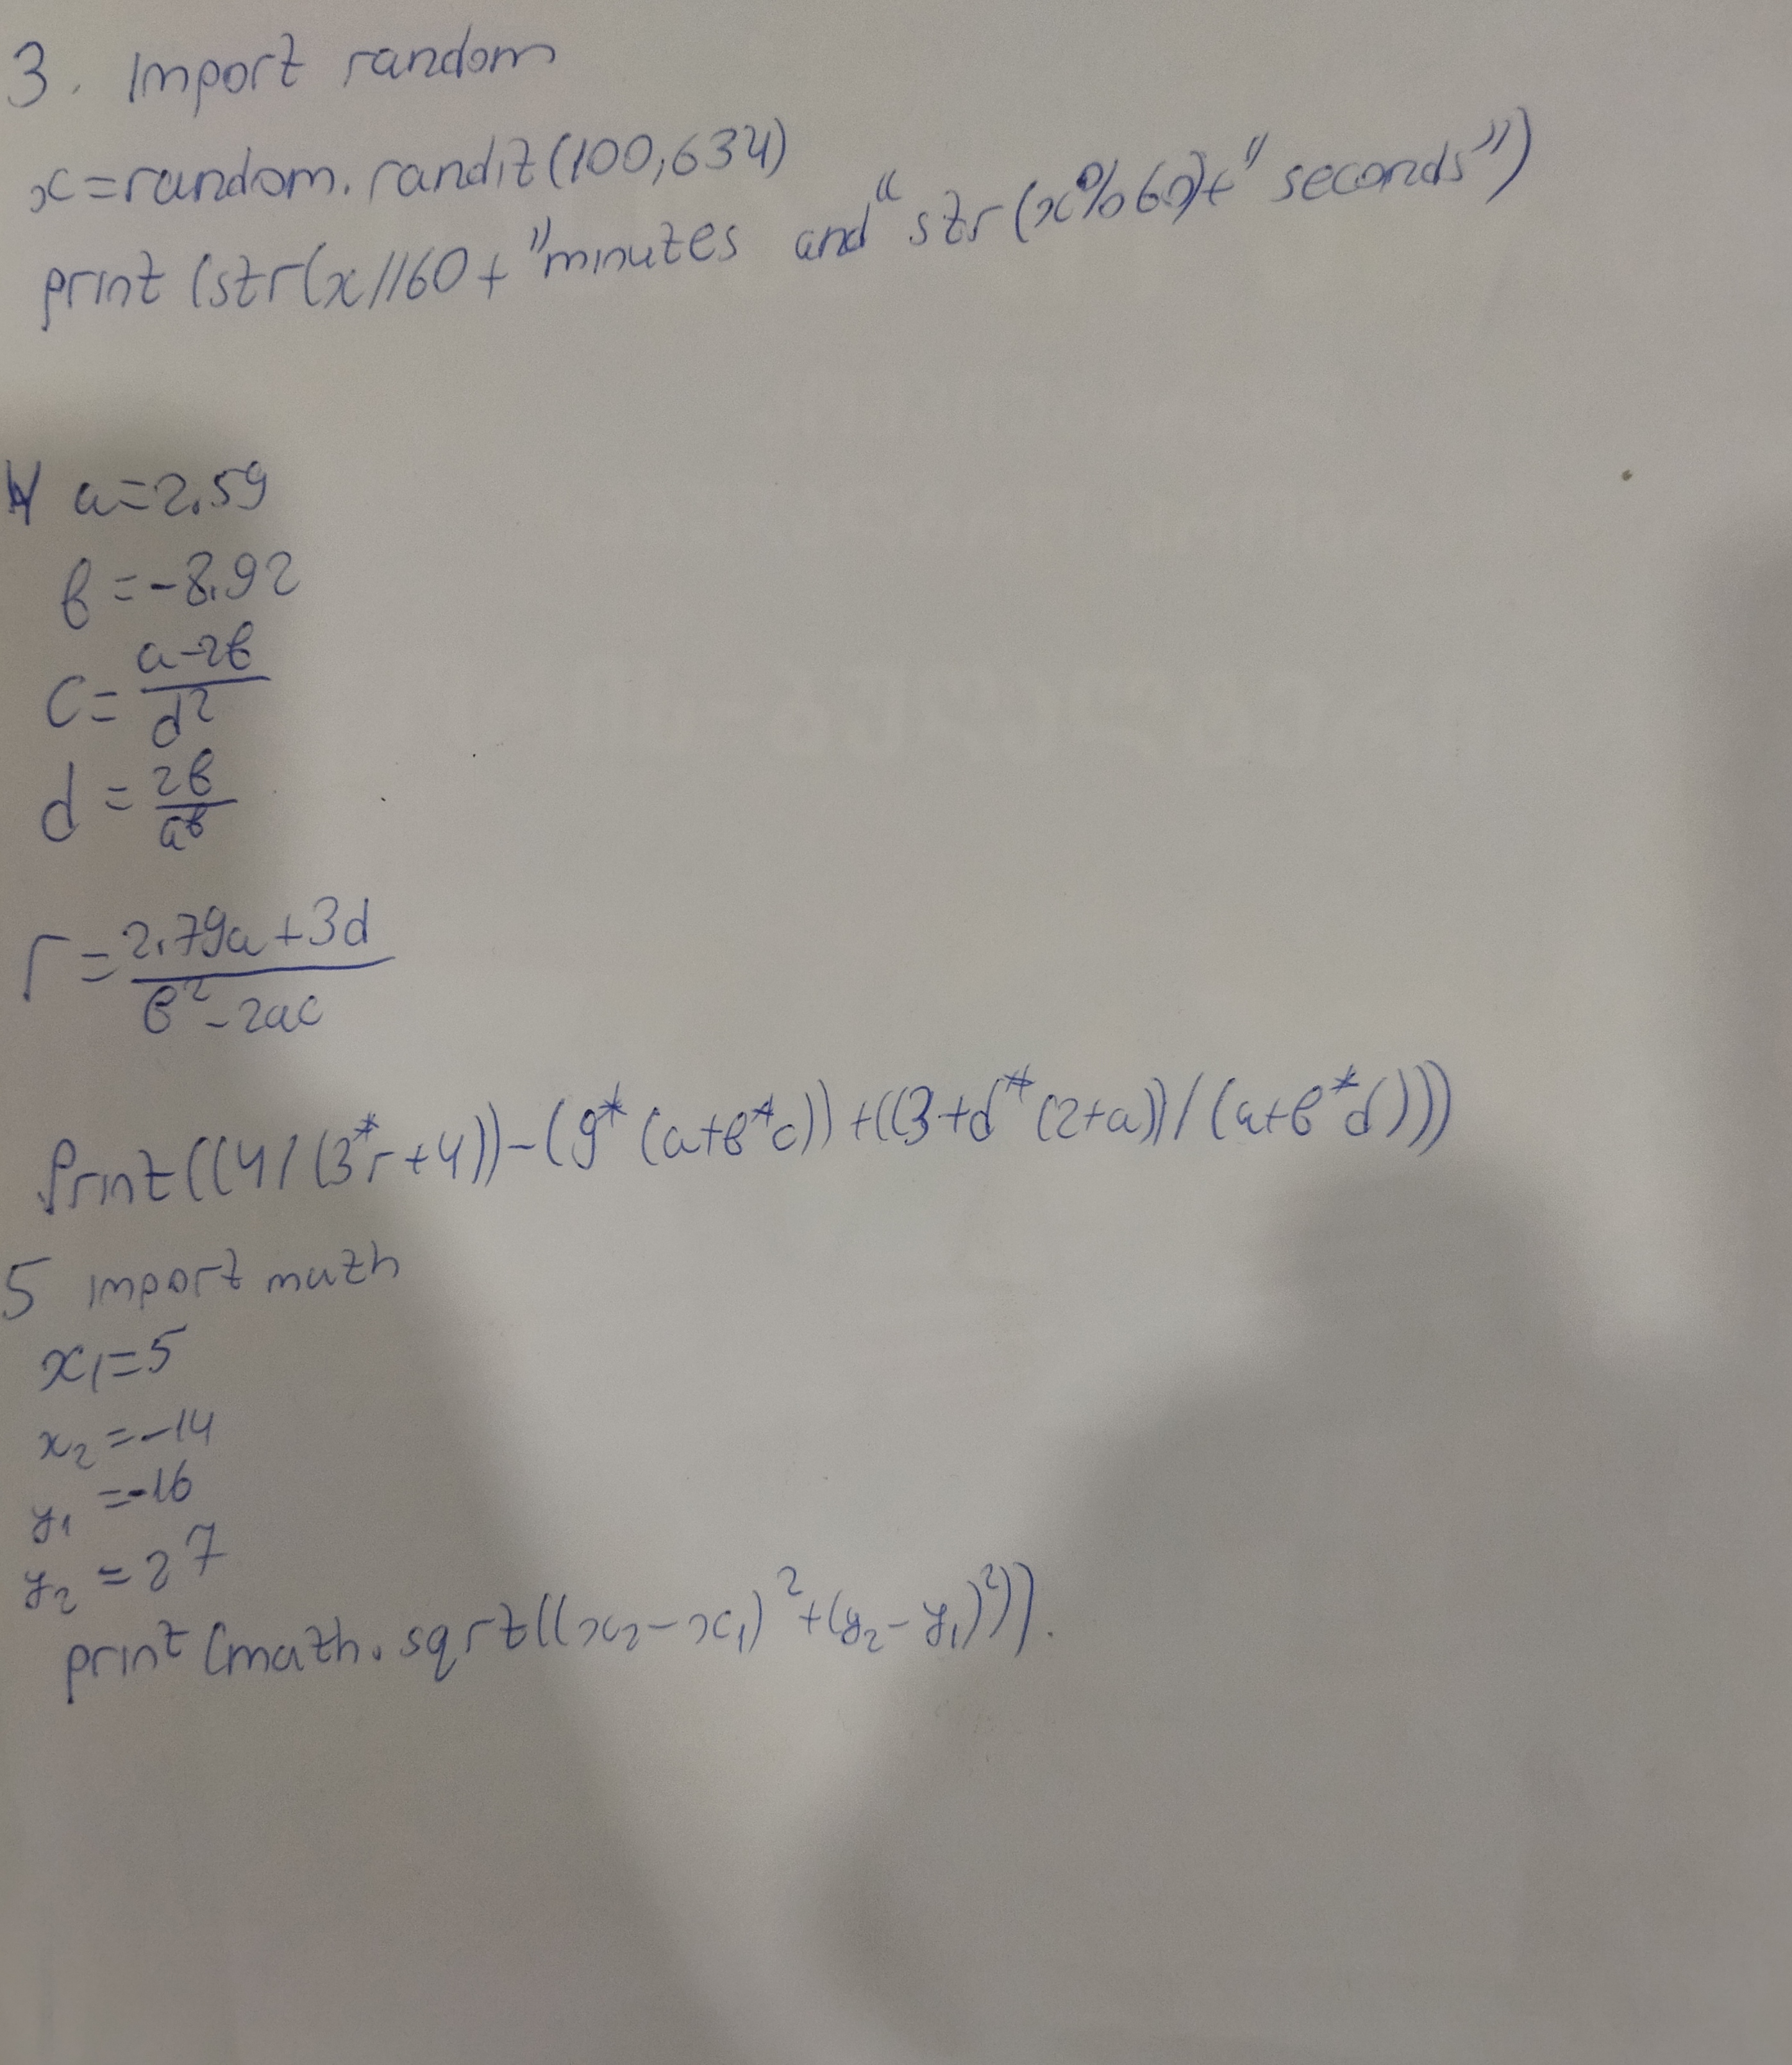 3. Import random
x=random.randit(100,634)
print (str(x//60+"minutes and" str(x%60)+" seconds")
4 a=2.59
b=-8.92
c=(a-2b)/d²
d=2b/ab
r=(2.79a+3d)/(b²-2ac)
Print((4/(3*r+4))-(9*(a+b*c))+((3+d*(2+a))/(a+b*d)))
5 import math
x1=5
x2=-14
y1=-16
y2=27
print(math.sqrt((x2-x1)²+(y2-y1)²)).